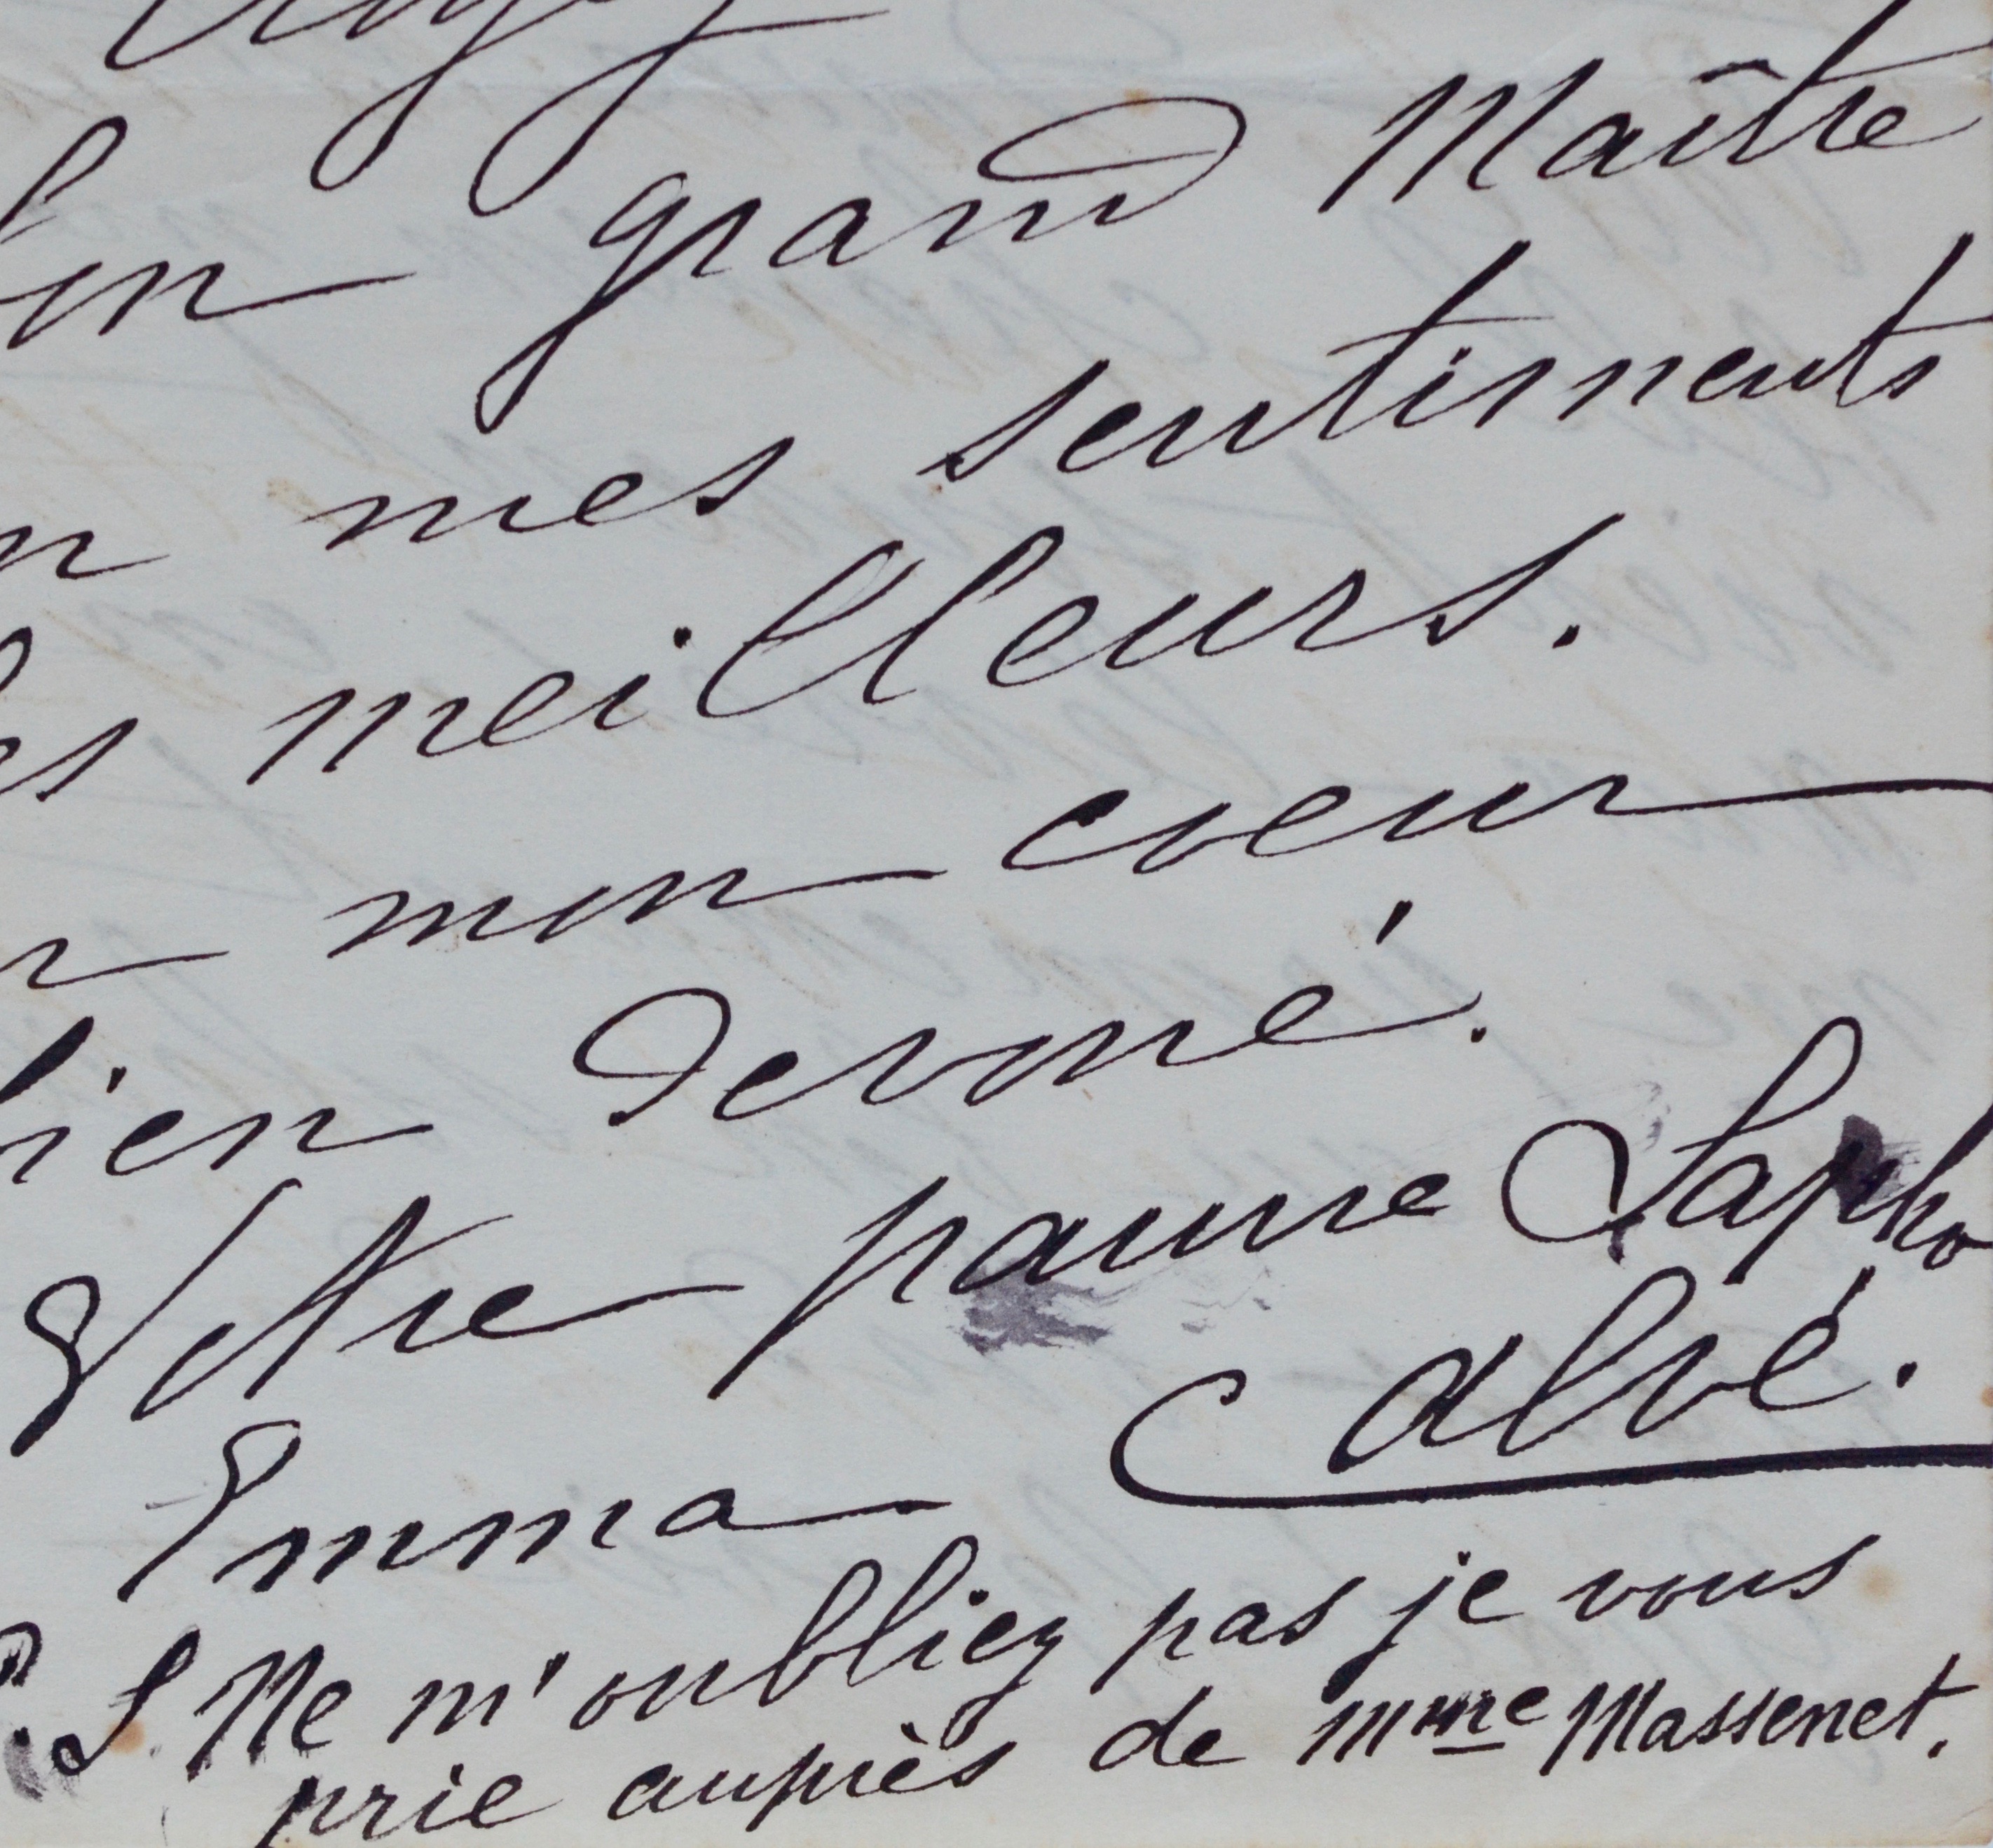 grand Maître
mes sentiments
meilleurs.
mon coeur
bien devoué.
Votre pauvre Sapho
Emma Calvé.
P.S Ne m'oubliez pas je vous
prie auprès de Mme Massenet.